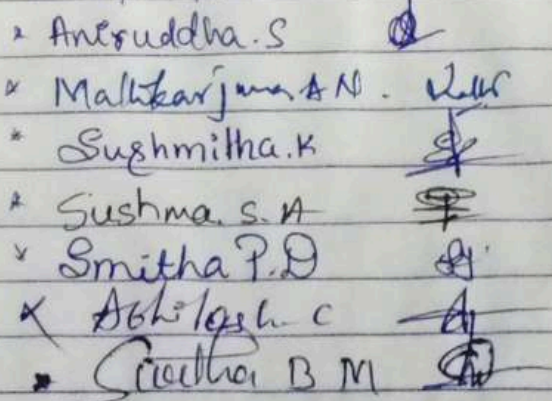 Aniruddha.S
Mallikarjuna A N.
Sushmitha.K
Sushma. S. A
Smitha P.D
Abhilash. C
B M